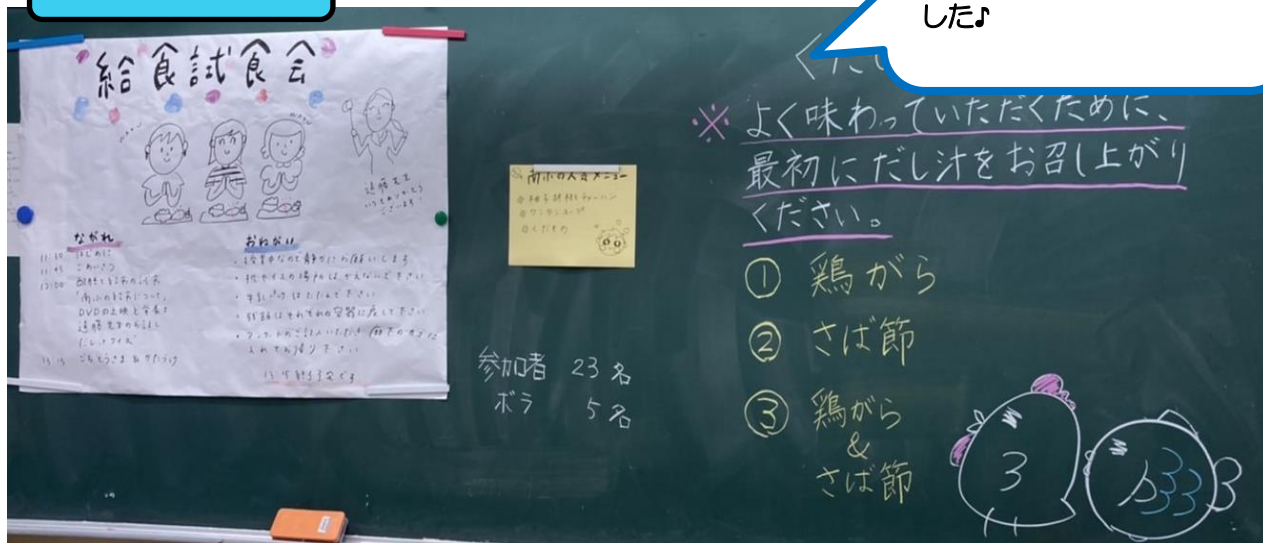 した♪
給食試食会
ながれ
11:40 はじめに
11:45 ごあいさつ
12:00 配膳と給食の試食
「南小の給食について」
DVDの上映と栄養士
遠藤先生のお話し
だしクイズ
13:15 ごちそうさま あとかたづけ
遠藤先生
いつもありがとう
ございます!
おねがい
・授業中なので静かにお願いします
・机やイスの場所はかえないで下さい
・牛乳パックはたたんで下さい
・残飯はそれぞれの容器に戻して下さい
・アンケートのご記入いただき 廊下の
入れてお帰り下さい
13:15 終了予定です
南小の人気メニュー
チャーハン
ワンタンスープ
くだもの
参加者 23名
ボラ 5名
※ よく味わっていただくために、
最初にだし汁をお召し上がり
ください。
① 鶏がら
② さば節
③ 鶏がら
&
さば節